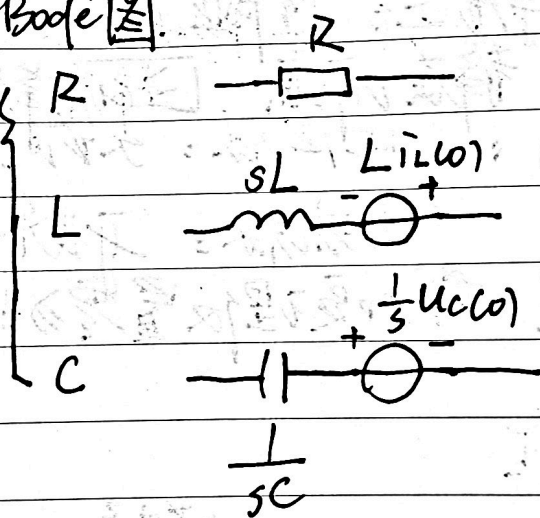 Bode图.
R
R
sL
Li_L(0)
- +
L
1/s u_c(0)
+ -
C
1/sC